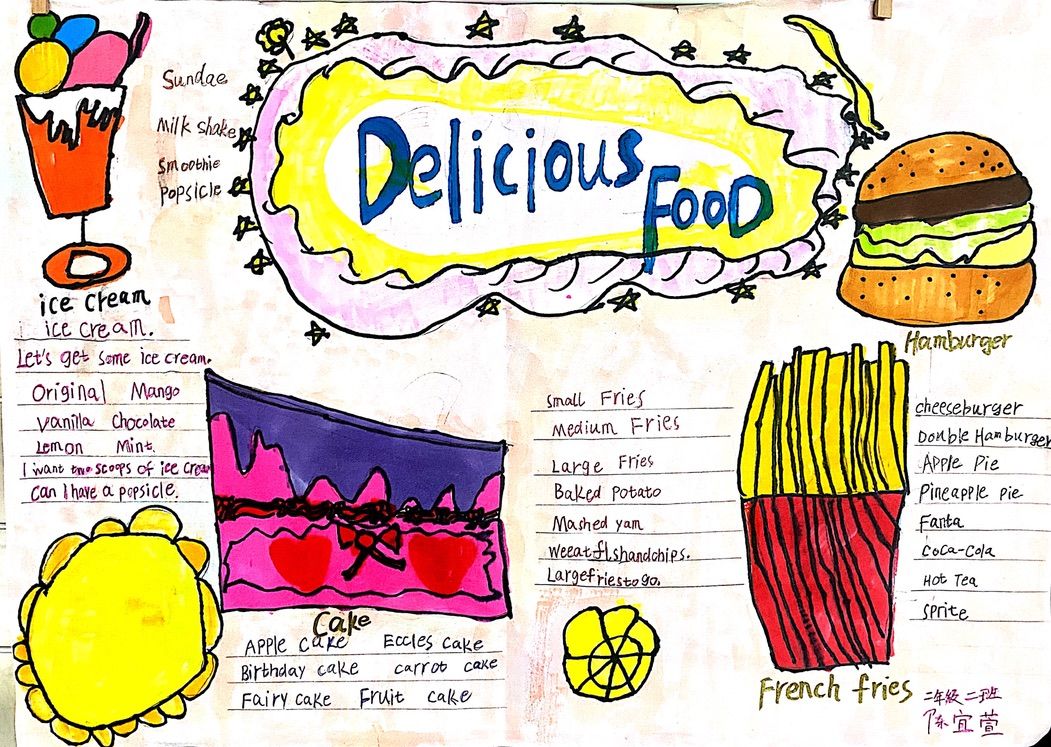 Delicious
Food
Sundae
Milk shake
Smoothie
Popsicle
ice cream
ice cream.
Let's get some ice cream.
Original Mango
Vanilla Chocolate
Lemon Mint
I want two scoops of ice cream
Can I have a popsicle.
Cake
Apple Cake Eccles cake
Birthday cake carrot cake
Fairy cake Fruit cake
small Fries
Medium Fries
Large Fries
Baked Potato
Mashed yam
weeatfishandchips.
Largefriestogo.
French fries
Hamburger
cheeseburger
Double Hamburger
Apple Pie
Pineapple pie
Fanta
Coca-Cola
Hot Tea
Sprite
二年級二班
陈宜萱